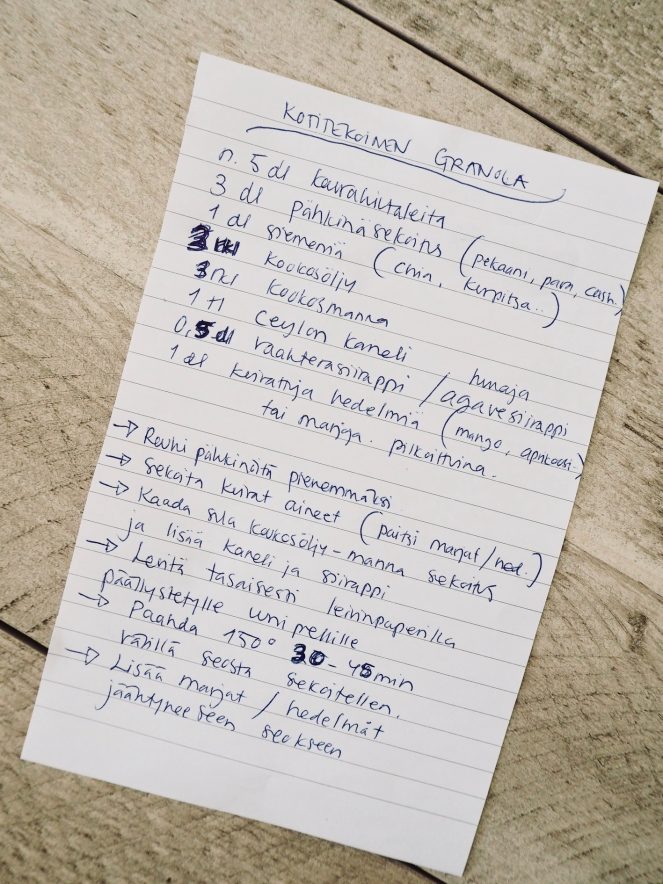 KOTITEKOINEN GRANOLA
n. 5 dl kaurahiutaleita
3 dl pähkinäsekoitus (pekaani, para, cash.)
1 dl siemeniä (chia, kurpitsa..)
3 rkl kookosöljy
3 rkl kookosmanna
1 tl Ceylon kaneli
0,5 dl vaahterasiirappi / hunaja
agavesiirappi
1 dl kuivattuja hedelmiä (mango, aprikoosi.)
tai marjoja. pilkottuina.
→ Rouhi pähkinöitä pienemmäksi
→ Sekoita kuivat aineet (paitsi marjat/hed.)
→ Kaada sula kookosöljy-manna sekoitus
ja lisää kaneli ja siirappi
→ Levitä tasaisesti leivinpaperilla
päällystetylle uunipellille
→ Paahda 150° 30-45 min
välillä seosta sekoitellen.
→ Lisää marjat / hedelmät
jäähtyneeseen seokseen